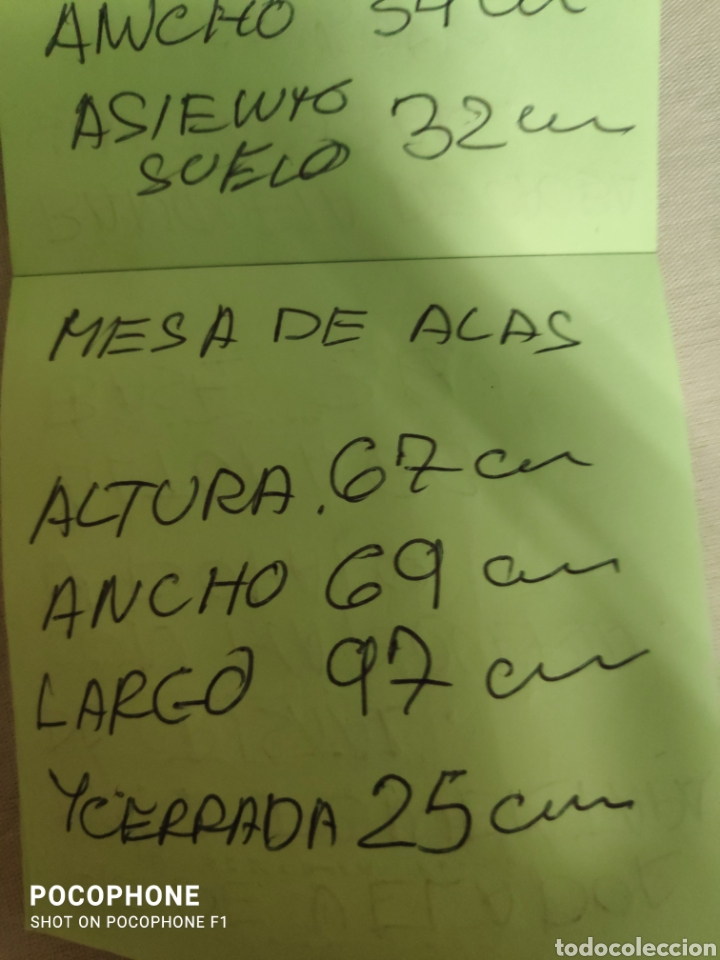 ANCHO 54 cm
ASIENTO 32 cm
SUELO
MESA DE ALAS
ALTURA. 67 cm
ANCHO 69 cm
LARGO 97 cm
Y CERRADA 25 cm
POCOPHONE
SHOT ON POCOPHONE F1
todocoleccion